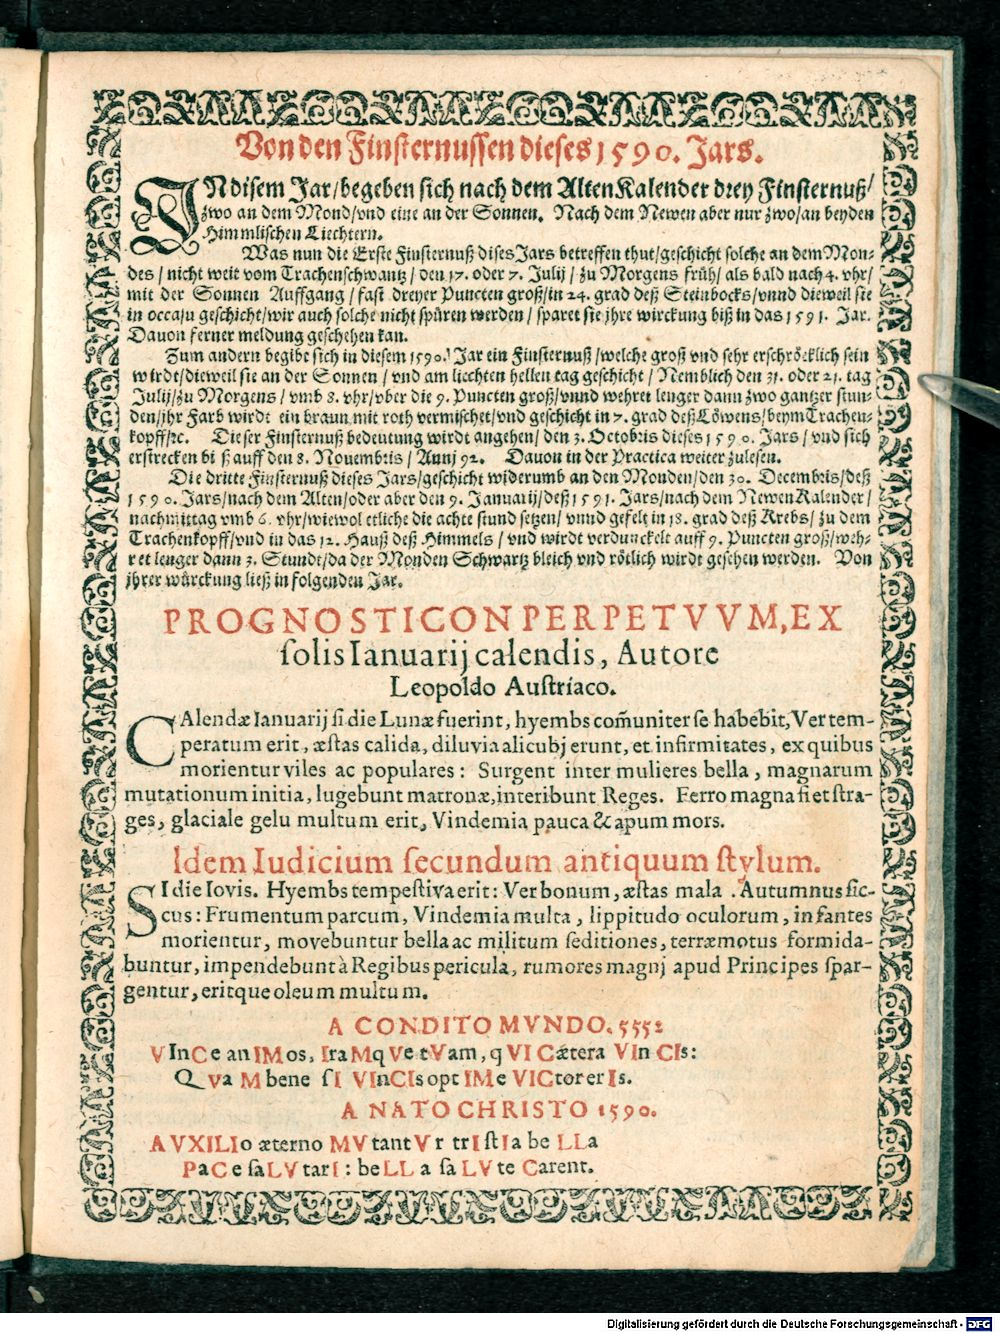 Von den Finsternussen dieses 1590. Jars.
IN disem Jar/begeben sich nach dem Alten Kalender drey Finsternuß/
zwo an dem Mond/vnd eine an der Sonnen. Nach dem Newen aber nur zwo/an beyden
Himmlischen Liechtern.
Was nun die Erste Finsternuß dises Jars betreffen thut/geschicht solche an dem Mon-
des/nicht weit vom Trachenschwantz/den 17. oder 7. Julij/zu Morgens früh/als bald nach 4. vhr/
mit der Sonnen Auffgang/fast dreyer Puncten groß/in 24. grad deß Steinbocks/vnnd dieweil sie
in occasu geschicht/wir auch solche nicht spüren werden/sparet sie jhre wirckung biß in das 1591. Jar.
Dauon ferner meldung geschehen kan.
Zum andern begibe sich in diesem 1590. Jar ein Finsternuß/welche groß vnd sehr erschröcklich sein
wirdt/dieweil sie an der Sonnen/vnd am liechten hellen tag geschicht/Nemblich den 31. oder 21. tag
Julij/zu Morgens/vmb 8. vhr/vber die 9. Puncten groß/vnnd wehret lenger dann zwo gantzer stun-
den/jhr Farb wirdt ein braun mit roth vermischet/vnd geschicht in 7. grad deß Löwens/beym Trachen-
kopff/ꝛc. Dieser Finsternuß bedeutung wirdt angehen/den 3. Octobris dieses 1590. Jars/vnd sich
erstrecken bi ß auff den 8. Nouembris/Annj 92. Dauon in der Practica weiter zulesen.
Die dritte Finsternuß dieses Jars/geschicht widerumb an den Monden/den 30. Decembris/deß
1590. Jars/nach dem Alten/oder aber den 9. Januarij/deß 1591. Jars/nach dem Newen Kalender/
nachmittag vmb 6. vhr/wiewol etliche die achte stund setzen/vnnd gefelt in 18. grad deß Krebs/zu dem
Trachenkopff/vnd in das 12. Hauß deß Himmels/vnd wirdt verdunckelt auff 9. Puncten groß/weh-
ret lenger dann 3. Stundt/da der Monden Schwartz bleich vnd rötlich wirdt gesehen werden. Von
jhrer würckung ließ in folgenden Jar.
PROGNOSTICON PERPETVVM, EX
solis Ianuarij calendis, Autore
Leopoldo Austriaco.
CAlendæ Ianuarij si die Lunæ fuerint, hyembs com̃uniter se habebit, Ver tem-
peratum erit, æstas calida, diluvia alicubj erunt, et infirmitates, ex quibus
morientur viles ac populares: Surgent inter mulieres bella, magnarum
mutationum initia, lugebunt matronæ, interibunt Reges. Ferro magna fiet stra-
ges, glaciale gelu multum erit, Vindemia pauca & apum mors.
Idem Iudicium secundum antiquum stylum.
SI die Iovis. Hyembs tempestiva erit: Ver bonum, æstas mala. Autumnus sic-
cus: Frumentum parcum, Vindemia multa, lippitudo oculorum, infantes
morientur, movebuntur bella ac militum seditiones, terræmotus formida-
buntur, impendebunt à Regibus pericula, rumores magnj apud Principes spar-
gentur, eritque oleum multum.
A CONDITO MVNDO. 5552
VInCe anIMos, IraMqVe tVam, qVI Cætera VInCIs:
QVa M bene sI VInCIs opt IMe VICtor erIs.
A NATO CHRISTO 1590.
AVXILIo æterno MVtantVr trIstIa beLLa
PaCe saLVtarI: beLLa saLVte Carent.
Digitalisierung gefördert durch die Deutsche Forschungsgemeinschaft - DFG